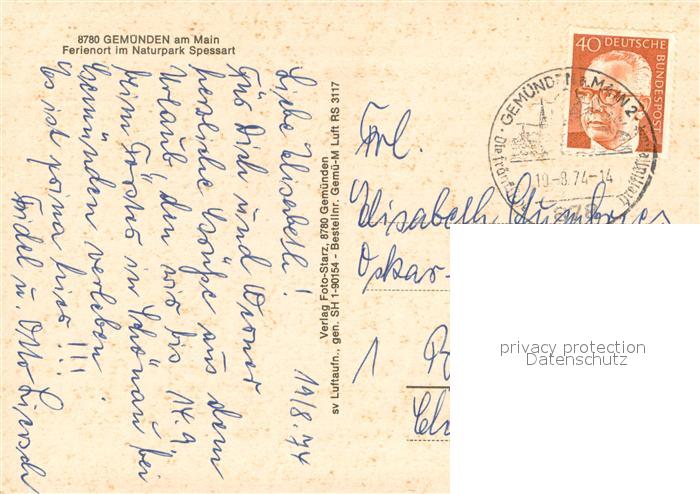 8780 GEMÜNDEN am Main
Ferienort im Naturpark Spessart
19/8.74
Liebe Elisabeth!
Für Dich und Werner
herzliche Grüße aus dem
Urlaub, den wir bis 14.9.
beim Förster in Schönau bei
Gemünden verleben.
Es ist prima hier!!!
Friedel u. Otto
Verlag Foto-Starz, 8780 Gemünden
sv Luftaufn., gen. SH 1-90154 - Bestellnr. Gemü-M Luft RS 3117
40 DEUTSCHE
BUNDESPOST
GEMÜNDEN a. MAIN 2
19-8.74-14
8780
Frl.
Elisabeth
Oskar-
1
privacy protection
Datenschutz